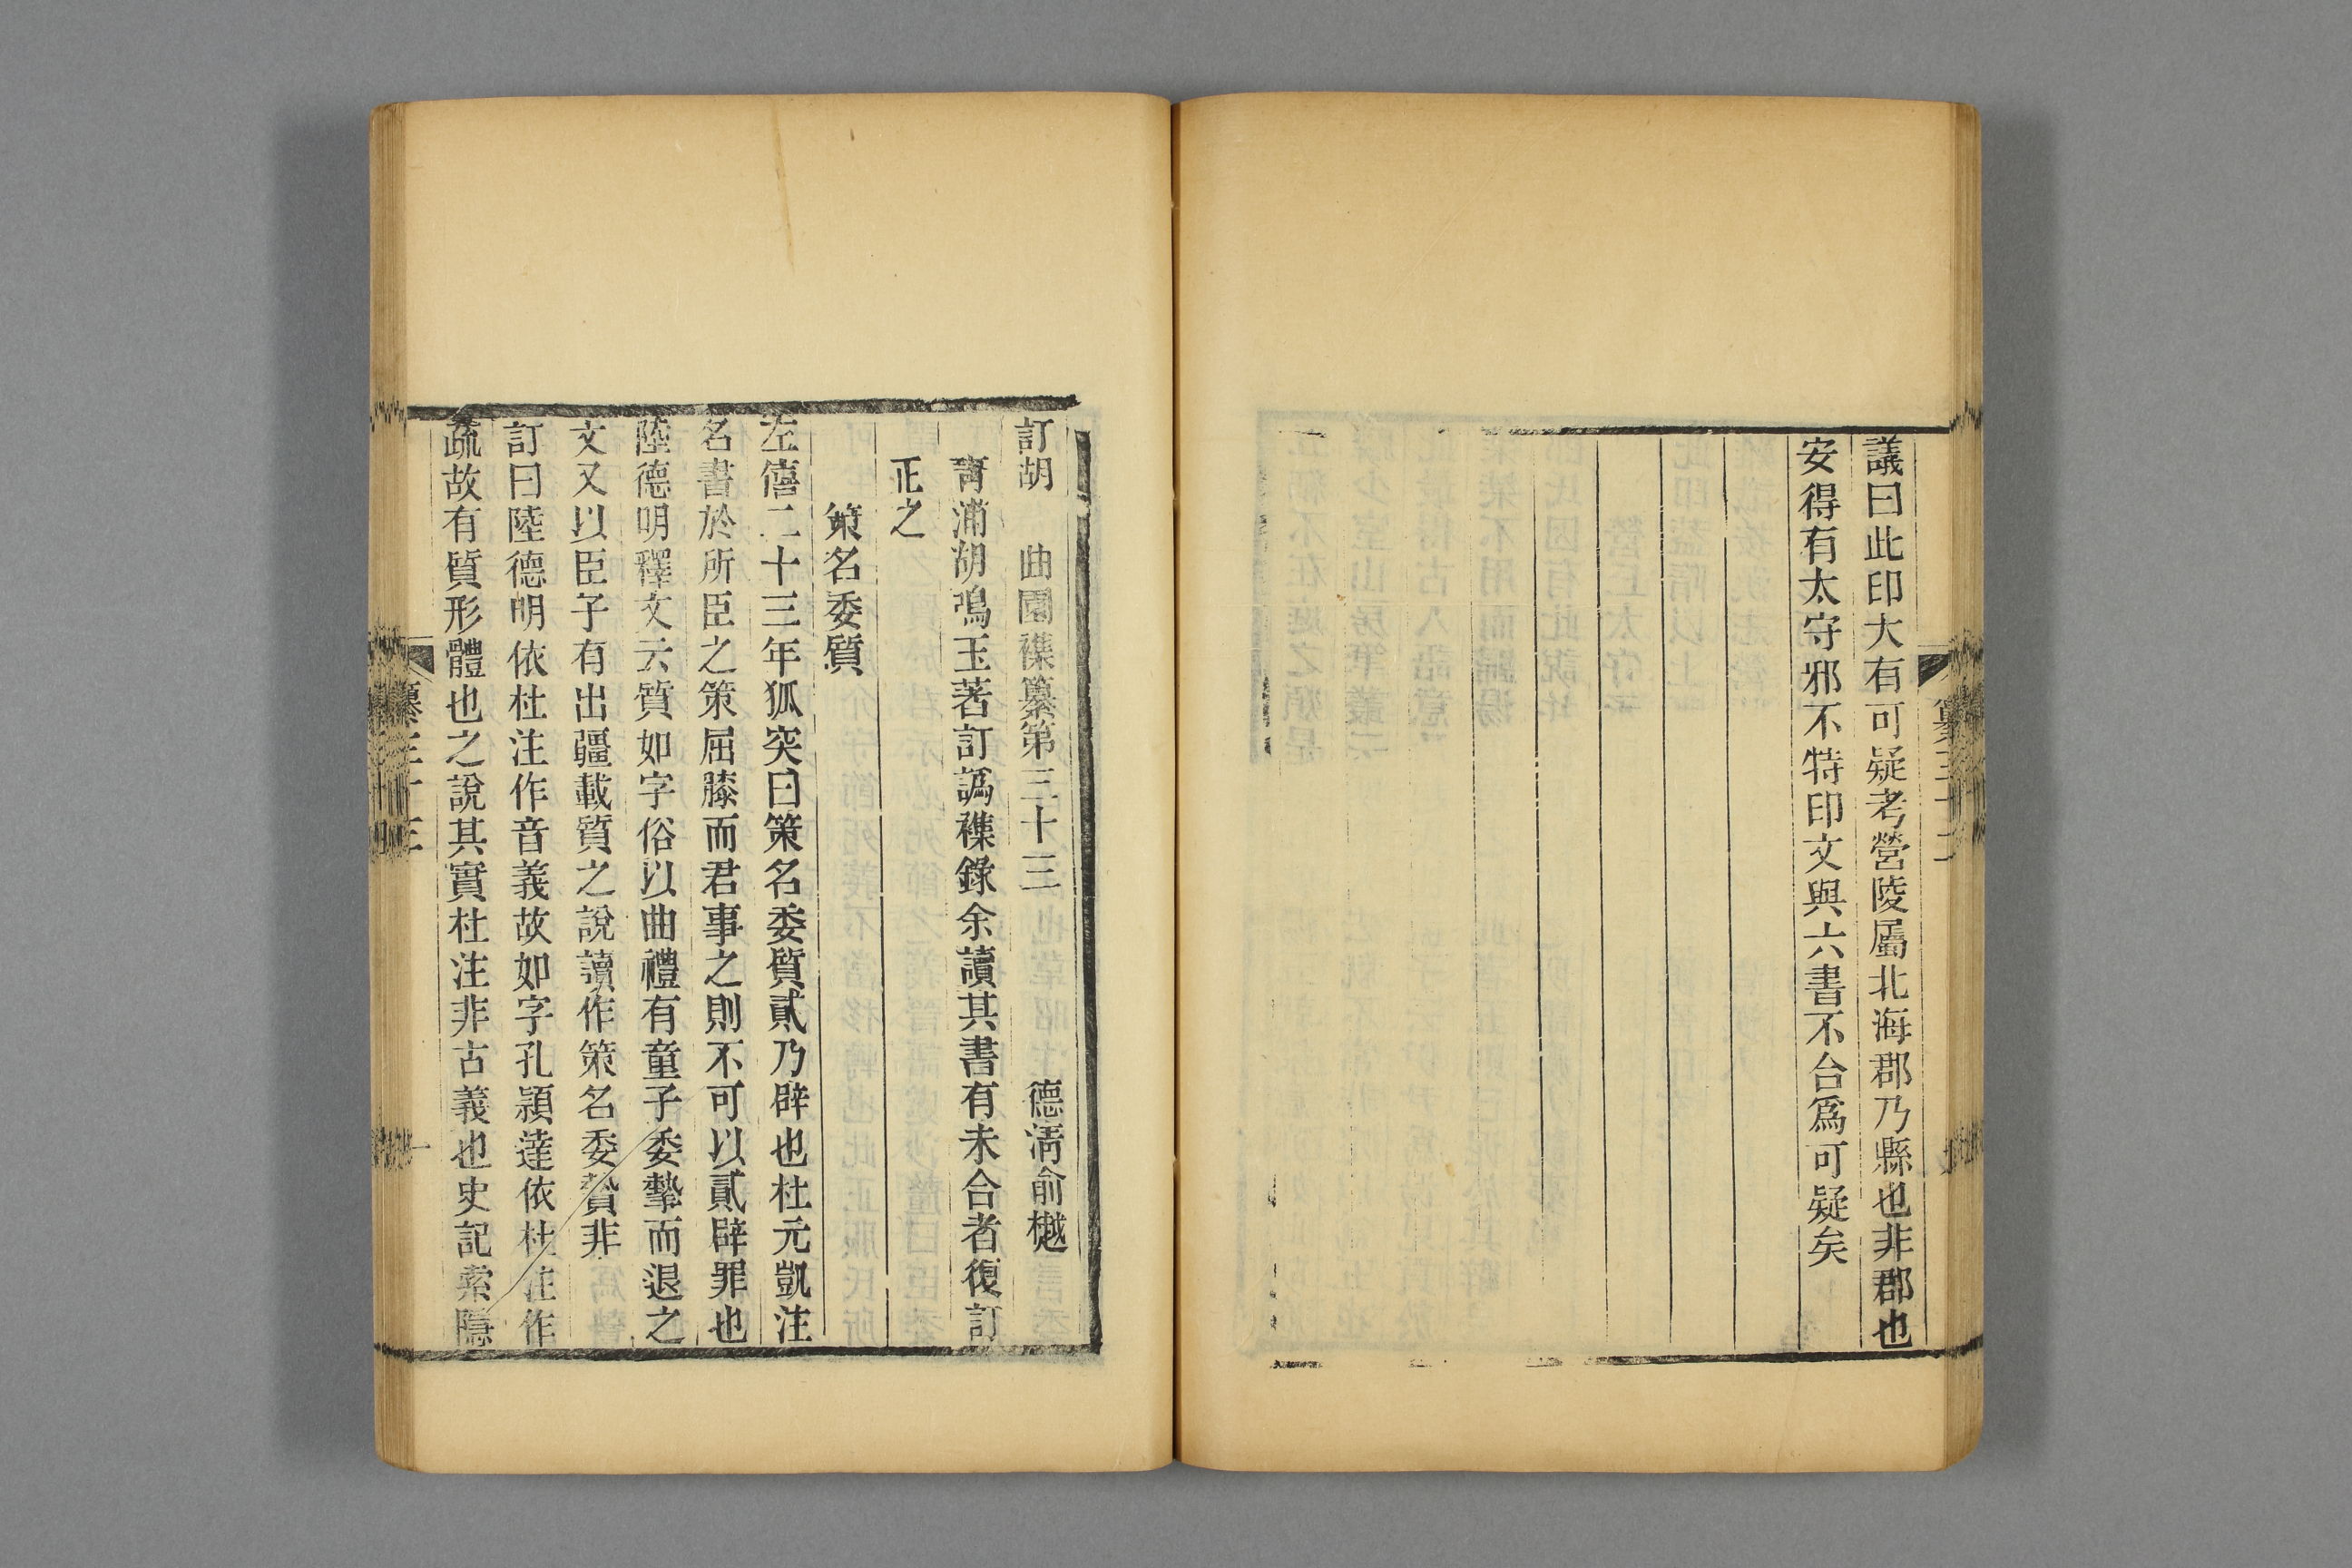 議曰此印大有可疑考營陵屬北海郡乃縣也非郡也
安得有太守邪不特印文與六書不合爲可疑矣
訂胡　曲園襍纂第三十三　德淸俞樾
靑浦胡鳴玉著訂譌襍錄余讀其書有未合者復訂
正之
策名委質
左僖二十三年狐突曰策名委質貳乃辟也杜元凱注
名書於所臣之策屈膝而君事之則不可以貳辟罪也
陸德明釋文云質如字俗以曲禮有童子委摯而退之
文又以臣子有出疆載質之說讀作策名委贄非
訂曰陸德明依杜注作音義故如字孔穎達依杜注作
疏故有質形體也之說其實杜注非古義也史記索隱
纂三十三
一